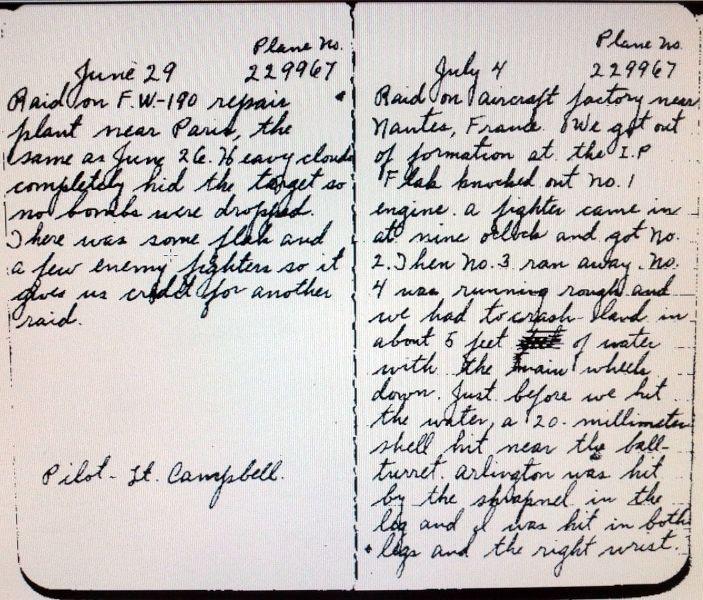 Plane No.
June 29 229967
Raid on F.W-190 repair
plant near Paris, the
same as June 26. Heavy clouds
completely hid the target so
no bombs were dropped.
There was some flak and
a few enemy fighters so it
gives us credit for another
raid.
Pilot - Lt. Campbell.
Plane No.
July 4 229967
Raid on aircraft factory near
Nantes, France. We got out
of formation at the I.P
Flak knocked out no. 1
engine. a fighter came in
at nine oclock and got No.
2. Then No. 3 ran away. No.
4 was running rough and
we had to crash-land in
about 5 feet of water
with the main wheels
down. Just before we hit
the water, a 20-millimeter
shell hit near the ball-
turret. Arlington was hit
by the shrapnel in the
leg and I was hit in both
legs and the right wrist.